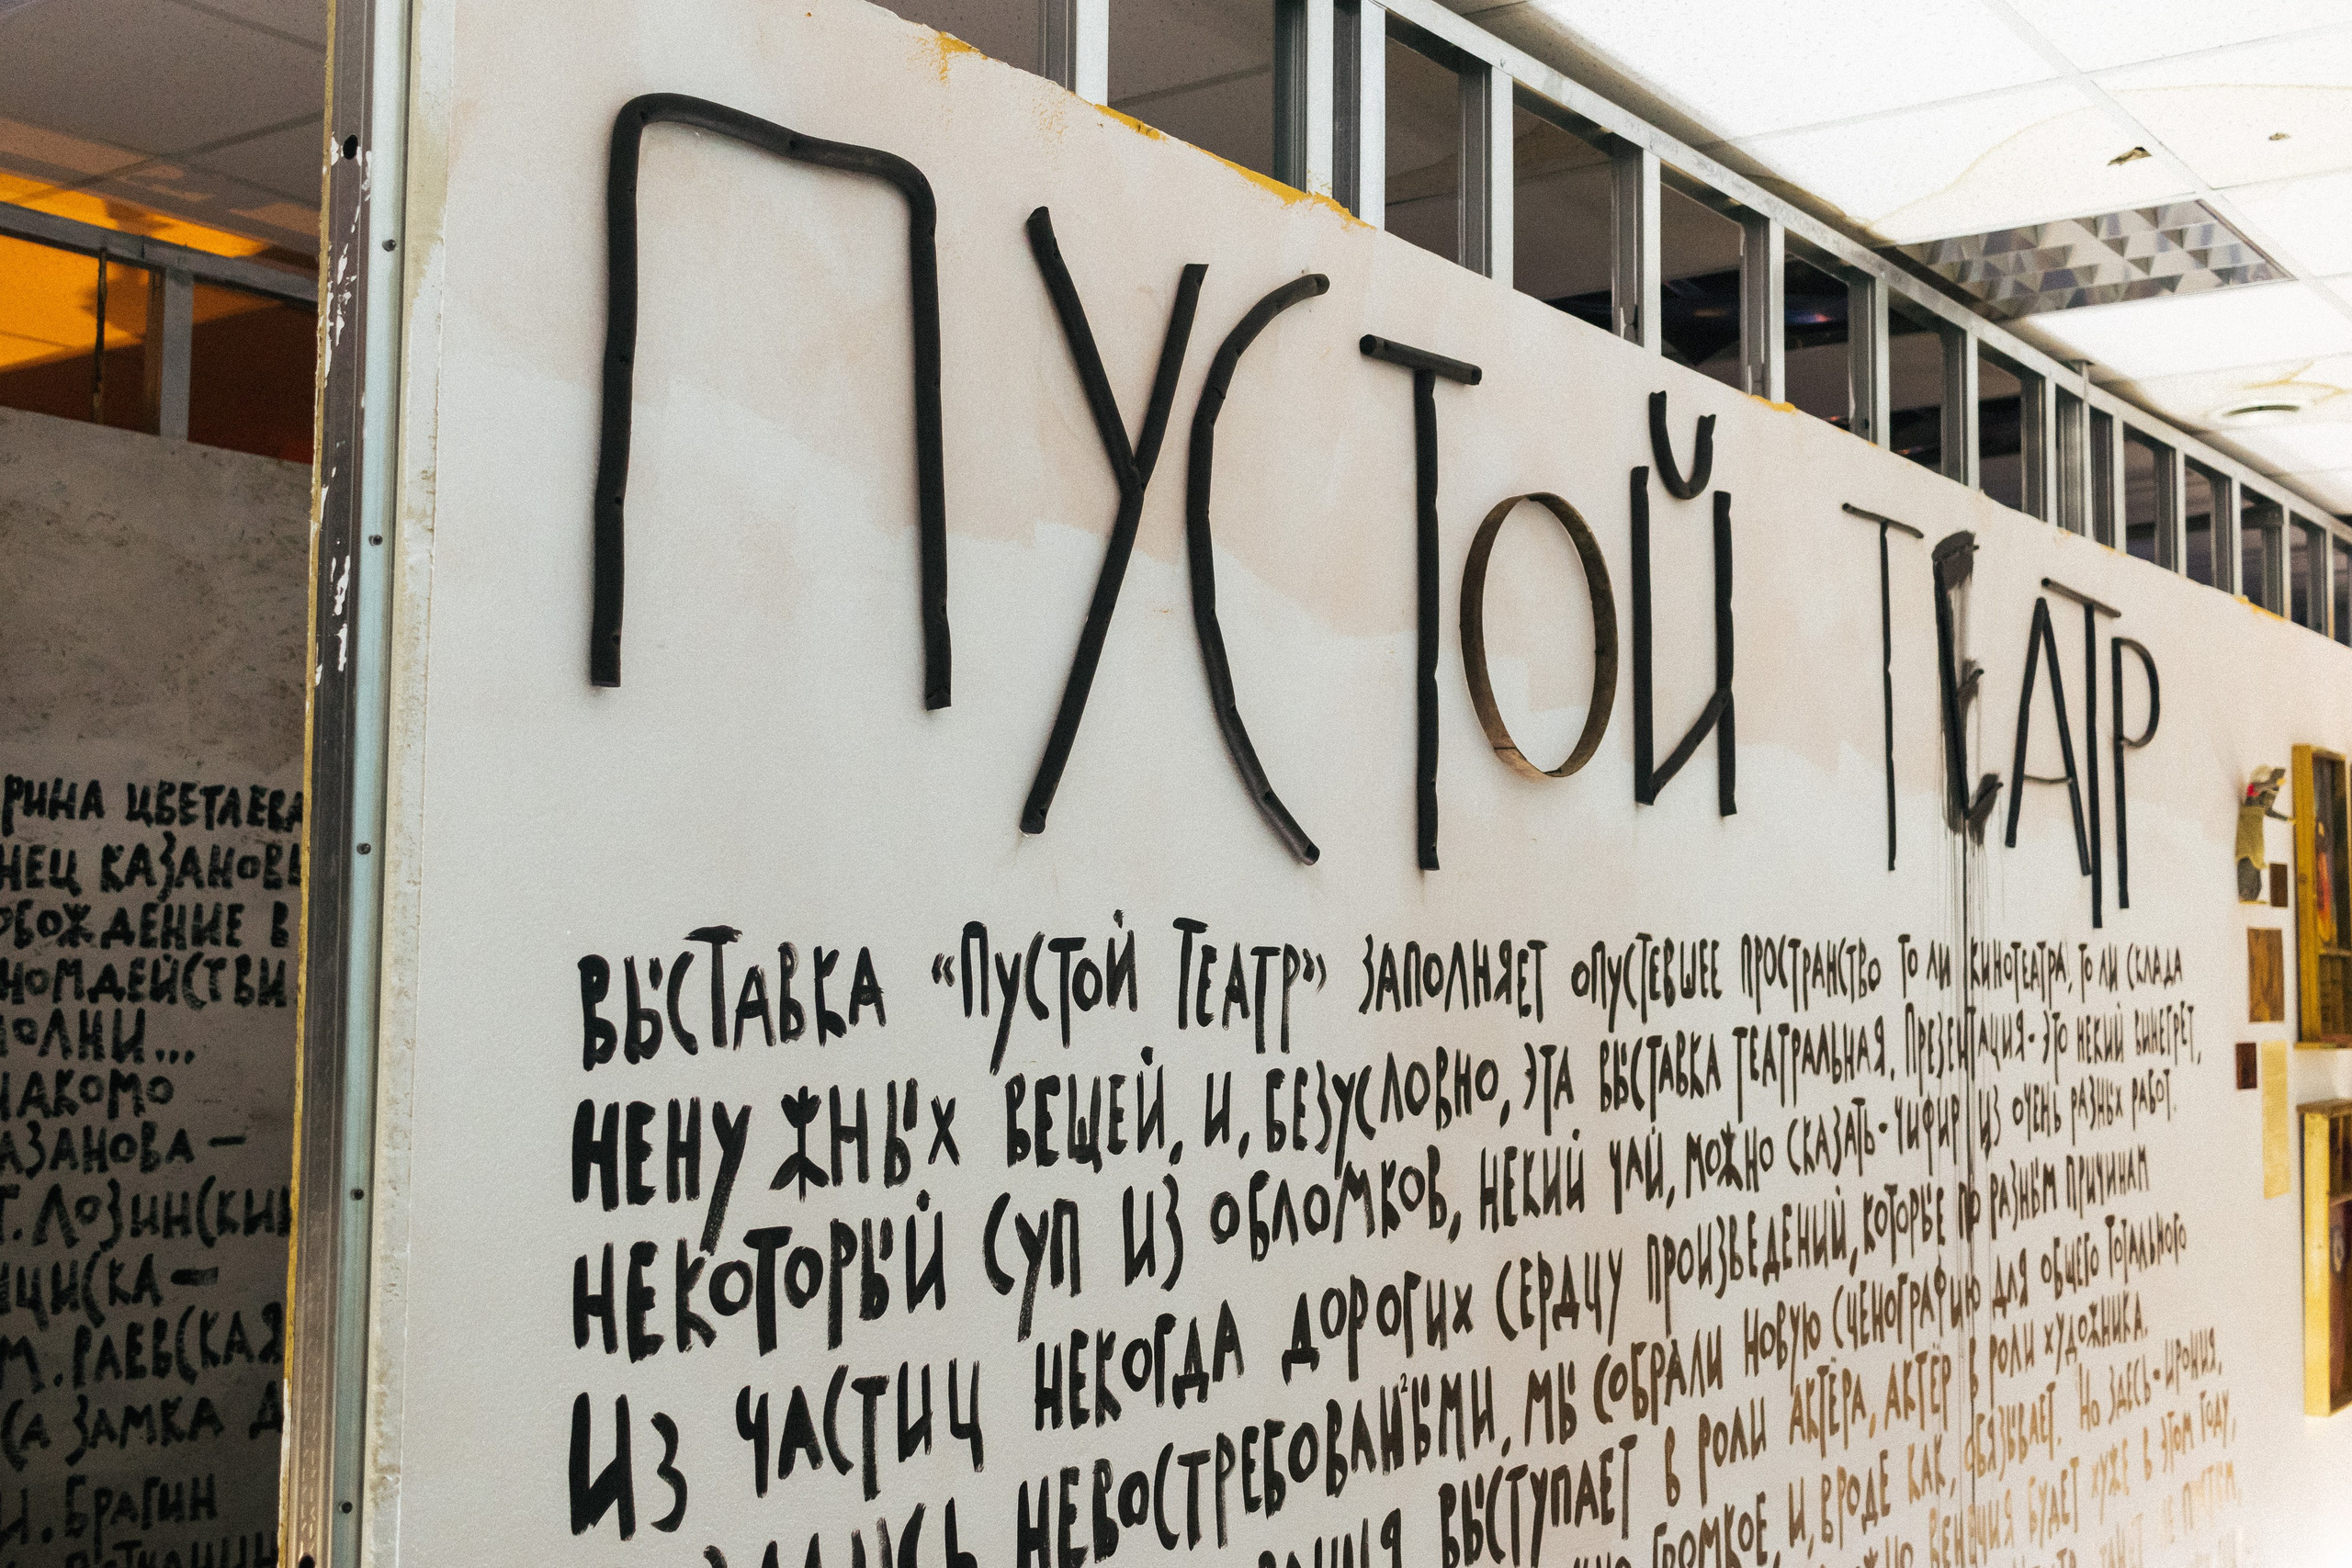 РИНА ЦВЕТАЕВА
НЕЦ КАЗАНОВЫ
ОБОЖДЕНИЕ В
НОМДЕЙСТВИ
ПОЛНИ...
НАКОМО
АЗАНОВА —
Т. ЛОЗИНСКИЙ
ЦИСКА —
М. РАЕВСКАЯ
СА ЗАМКА Д
И. БРАГИН
ПУСТОЙ ТЕАТР
ВЫСТАВКА «ПУСТОЙ ТЕАТР» ЗАПОЛНЯЕТ ОПУСТЕВШЕЕ ПРОСТРАНСТВО ТО ЛИ КИНОТЕАТРА, ТО ЛИ СКЛАДА
НЕНУЖНЫХ ВЕЩЕЙ, И, БЕЗУСЛОВНО, ЭТА ВЫСТАВКА ТЕАТРАЛЬНАЯ. ПРЕЗЕНТАЦИЯ - ЭТО НЕКИЙ ВИНЕГРЕТ,
НЕКОТОРЫЙ СУП ИЗ ОБЛОМКОВ, НЕКИЙ ЧАЙ, МОЖНО СКАЗАТЬ - ЧИФИР ИЗ ОЧЕНЬ РАЗНЫХ РАБОТ.
ИЗ ЧАСТИЦ НЕКОГДА ДОРОГИХ СЕРДЦУ ПРОИЗВЕДЕНИЙ, КОТОРЫЕ ПО РАЗНЫМ ПРИЧИНАМ
НЕВОСТРЕБОВАН²ЫМИ, МЫ СОБРАЛИ НОВУЮ СЦЕНОГРАФИЮ ДЛЯ ОБЩЕГО ТОТАЛЬНОГО
ВЫСТУПАЕТ В РОЛИ АКТЁРА, АКТЁР В РОЛИ ХУДОЖНИКА.
ГРОМКОЕ И, ВРОДЕ КАК, ОБЯЗЫВАЕТ. НО ЗДЕСЬ - ИРОНИЯ,
БУДЕТ ХУЖЕ В ЭТОМ ГОДУ,